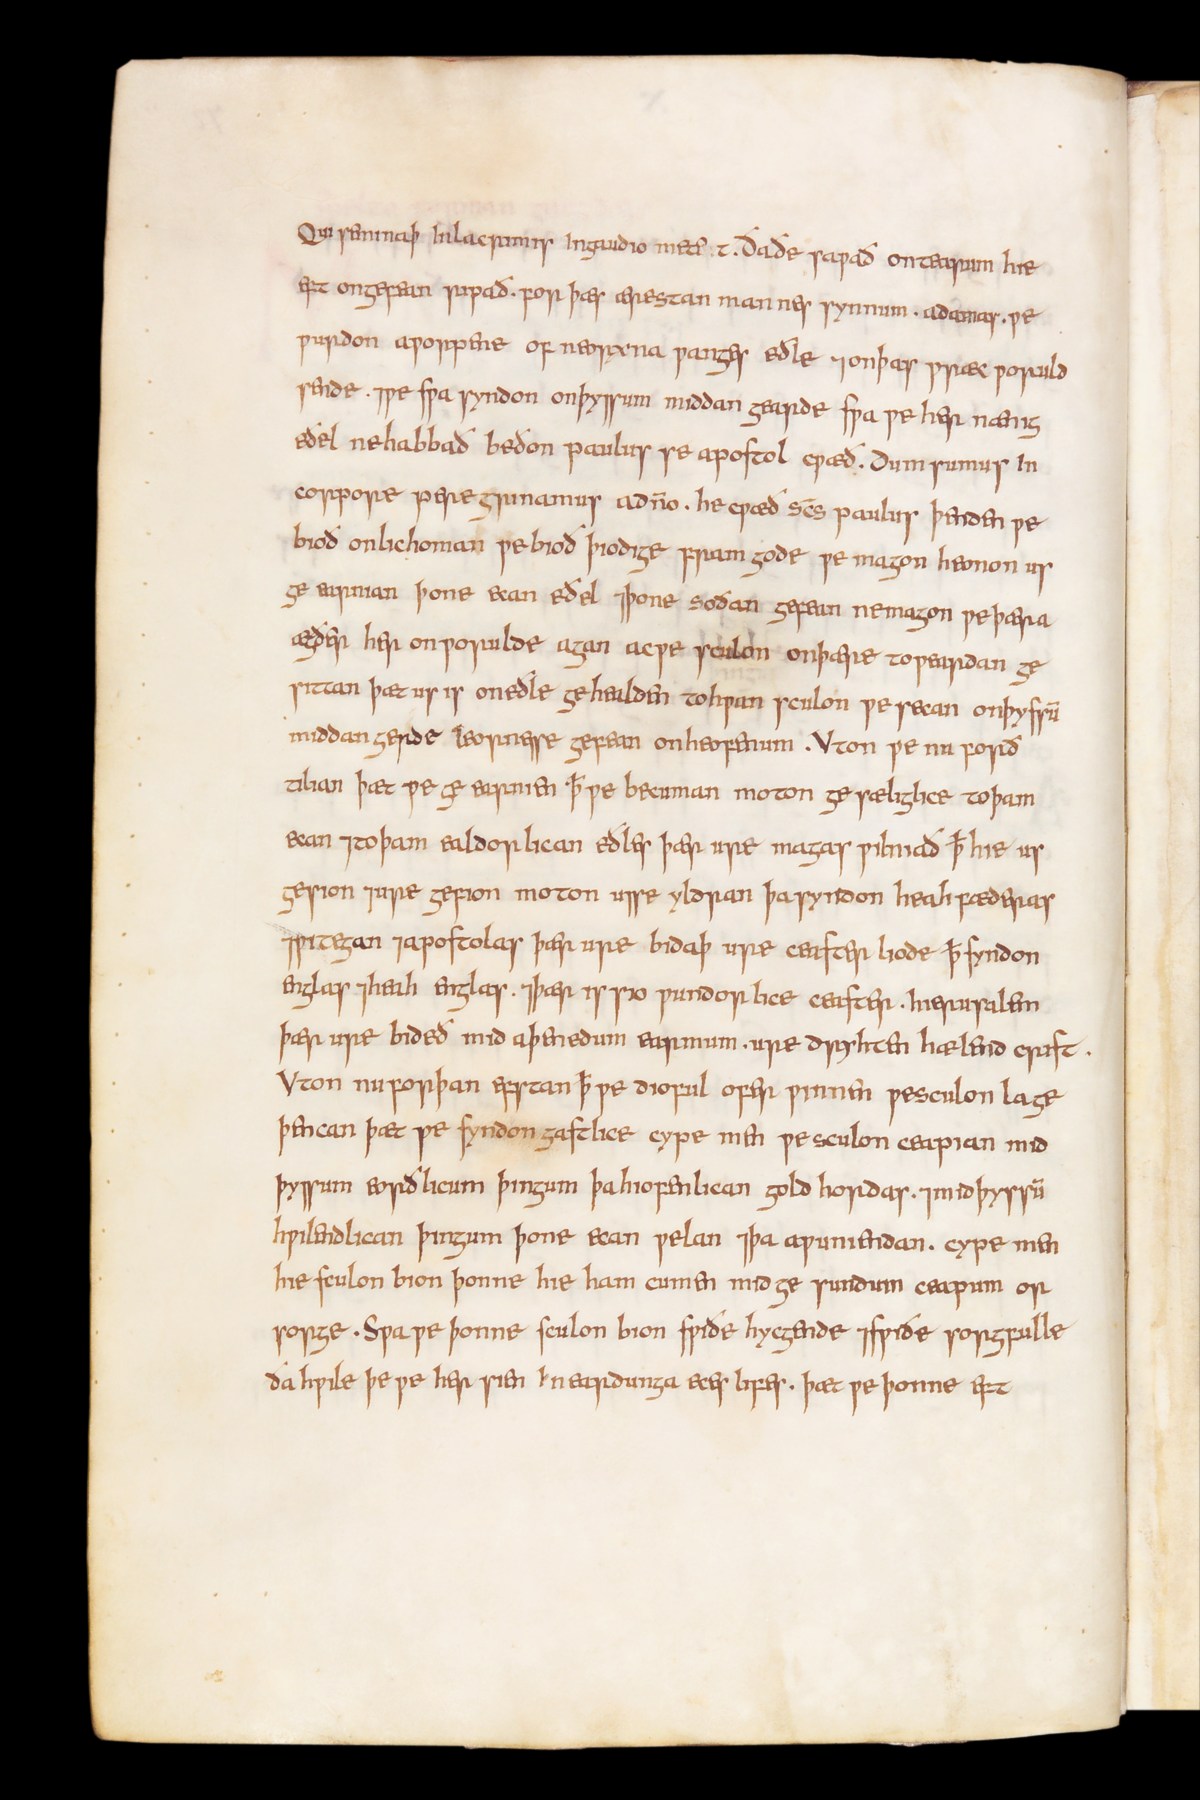 Qui seminaþ Inlacrimis Ingaudio metet. Ðaðe sapað onteaꞃum hie
eft ongefean ripað. for þæs ærestan mannes synnum. adames. ƿe
ƿurdon aƿorpene of neorxna ƿanges eðle ⁊onþas ƿræc ƿoruld
sende. ⁊ƿe sƿa syndon onþyssum middan gearde sƿa ƿe her nænig
eðel nehabbað beðon paulus se apostol cƿæð. Dum sumus In
corpore peregrinamur adño. he cƿæð sc̄s paulus þenden ƿe
bioð onlichoman ƿebioð þiodige fram gode ƿe magon heonon us
ge earnian þone ecan eðel ⁊þone soðan gefean nemagon ƿeþæra
ægðer her onƿorulde agan acƿe sculon onþære toƿeardan ge
sittan þæt us is oneðle gehealden tohƿan sculon ƿe secan onþyssū
middan gerde leornesse gefean onheofenum. Uton ƿe nu forð
tilian þæt ƿe ge earnien ꝥ ƿe becuman moton ge sæliglice toþam
ecan ⁊toþam ealdorlican eðles þær ure magas ƿilniað ꝥ hie us
gesion ⁊ure gefion moton usse yldran þasyndon heahfæderas
⁊ƿitegan ⁊apostolas þær ure bidaþ ure ceaster liode ꝥ syndon
englas ⁊heah englas. ⁊þær is sio ƿundorlice ceaster. hierusalem
þær ure bideð mid aþenedum earmum. ure dryhten hælend crist.
Uton nuforþan efstan ꝥ ƿe dioful ofer ƿinnen ƿesculon la ge
þencan þæt ƿe syndon gastlice cype men ƿesculon ceapian mid
þyssum eorðlicum þingum þahiofenlican gold hordas. ⁊midþyssū
hƿilendlican þingum þone ecan ƿelan ⁊þa aƿuniendan. cype men
hie sculon bion þonne hie ham cumen midge sundum ceapum or
sorge. Sƿa ƿe þonne sculon bion sƿiðe hycgende ⁊sƿiðe sorgfulle
ða hƿile þe ƿe her sien In eardunga eces lifes. þæt ƿe þonne eft